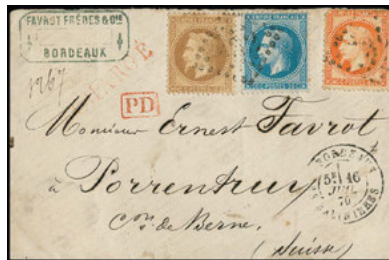 FAVROT FRÈRES & CIE
BORDEAUX
1267
CHARGÉ
PD
Monsieur Ernest Favrot
à Porrentruy
Con de Berne.
(Suisse)
BORDEAUX
5E 16
JUIL
70